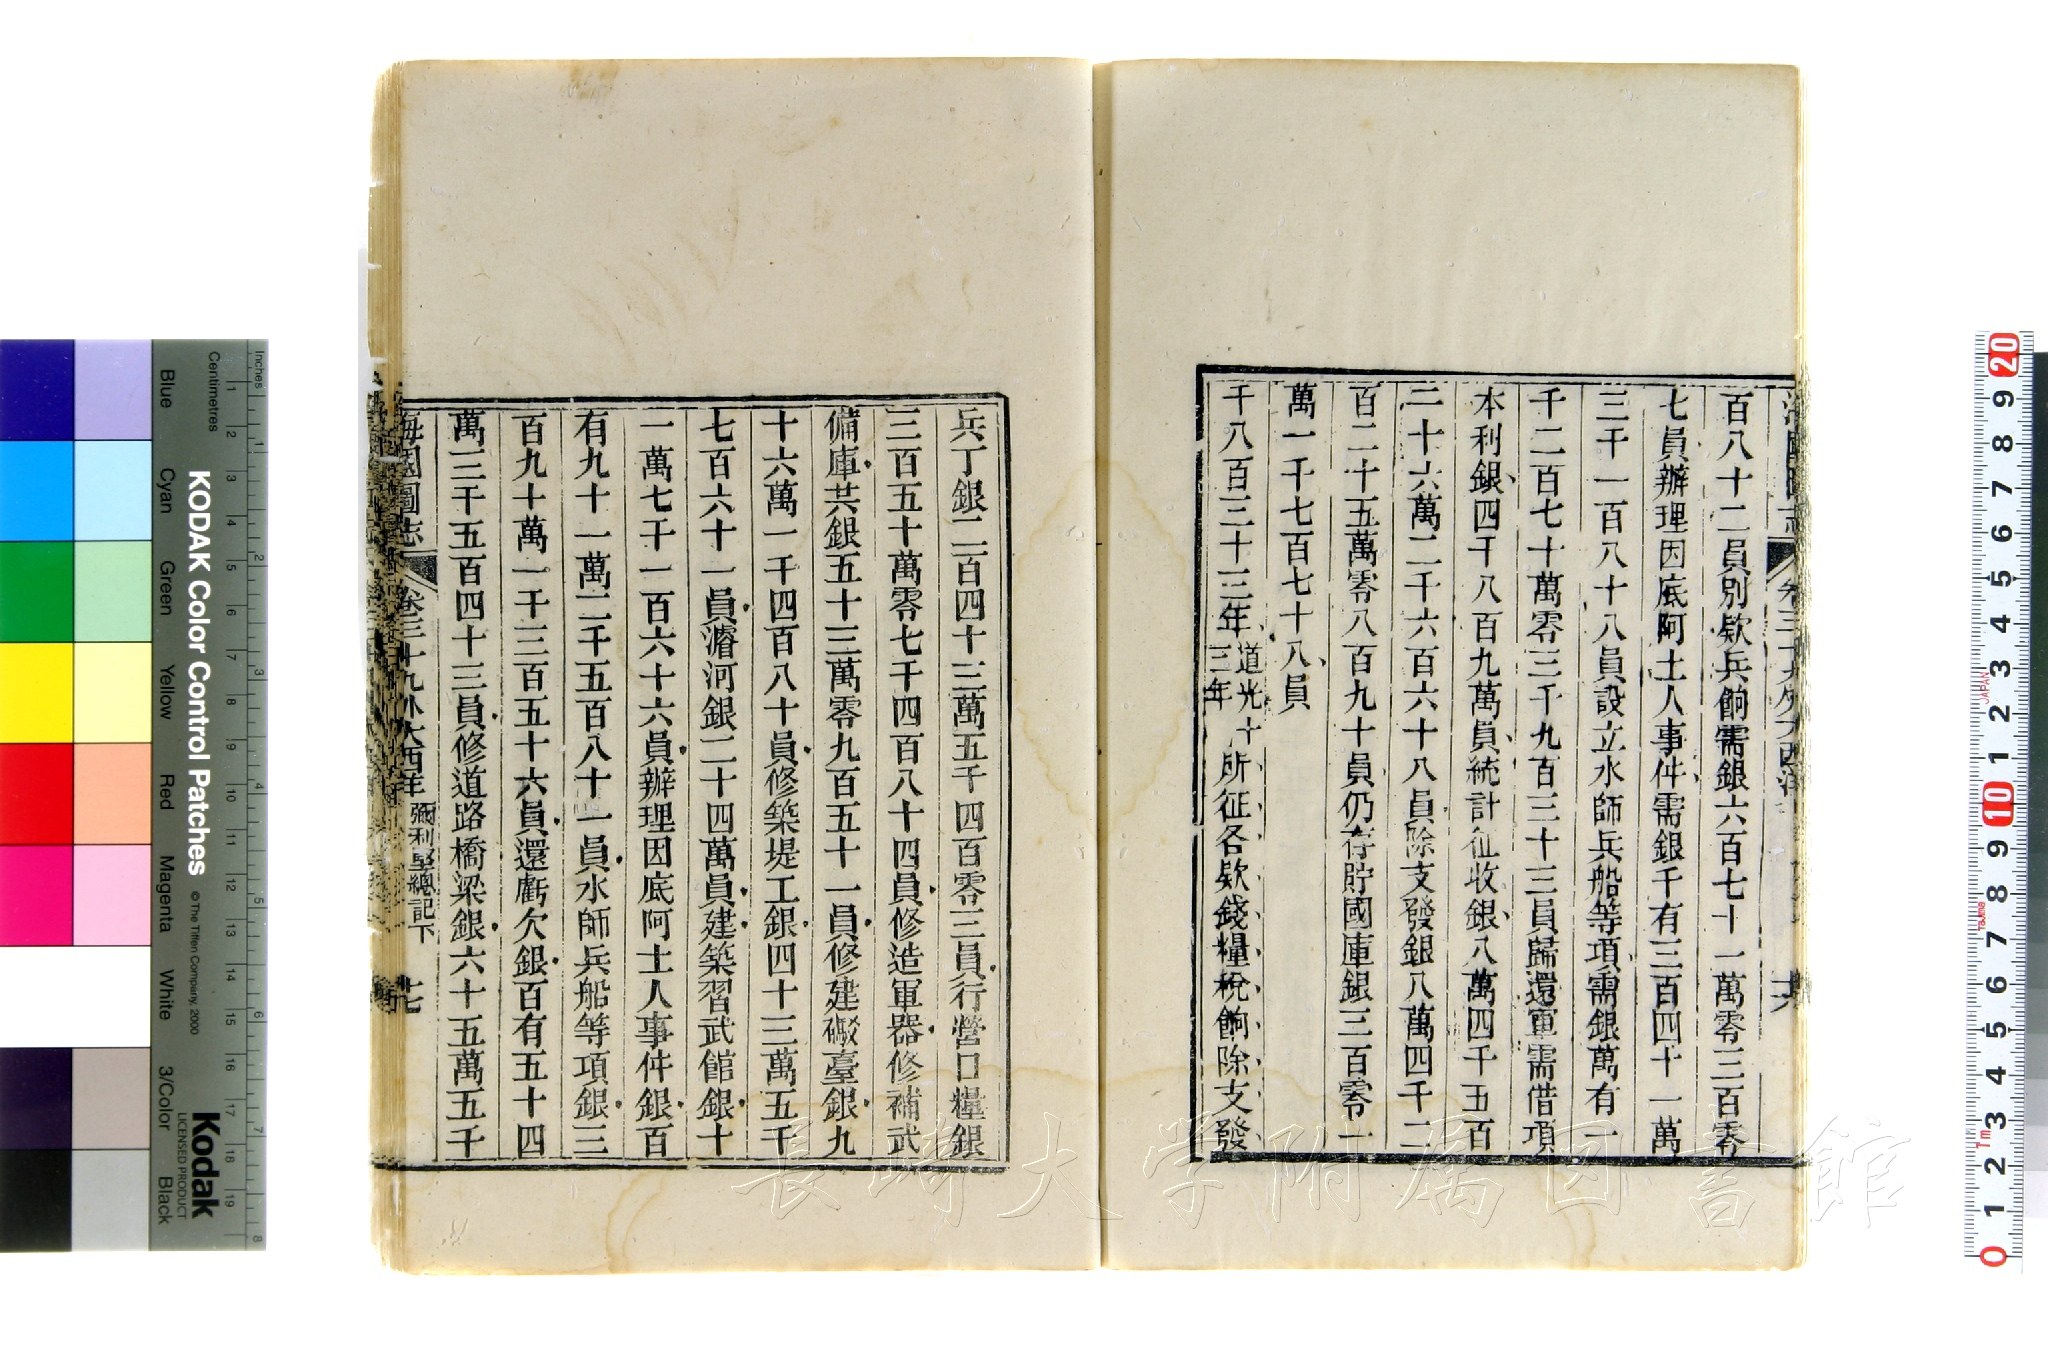 百八十二員別欵兵餉需銀六百七十一萬零三百零
七員辦理因底阿土人事件需銀千有三百四十一萬
三千一百八十八員設立水師兵船等項需銀萬有一
千二百七十萬零三千九百三十三員歸還軍需借項
本利銀四千八百九萬員統計征收銀八萬四千五百
二十六萬二千六百六十八員除支發銀八萬四千二
百二十五萬零八百九十員仍存貯國庫銀三百零一
萬一千七百七十八員
千八百三十三年道光十三年所征各欵錢糧稅餉除支發
兵丁銀二百四十三萬五千四百零三員行營口糧銀
三百五十萬零七千四百八十四員修造軍器修補武
備庫共銀五十三萬零九百五十一員修建礮臺銀九
十六萬一千四百八十員修築堤工銀四十三萬五千
七百六十一員濬河銀二十四萬員建築習武館銀十
一萬七千一百六十六員辦理因底阿土人事件銀百
有九十一萬二千五百八十一員水師兵船等項銀三
百九十萬一千三百五十六員還虧欠銀百有五十四
萬三千五百四十三員修道路橋梁銀六十五萬五千
海國圖志 卷三十九外大西洋 彌利堅總記下 十七
長崎大学附属図書館
Inches
Centimetres
Blue Cyan Green Yellow Red Magenta White 3/Color Black
KODAK Color Control Patches
© The Tiffen Company, 2000
Kodak
LICENSED PRODUCT
1 2 3 4 5 6 7 8 9 10 11 12 13 14 15 16 17 18 19
1 2 3 4 5 6 7 8
20 9 8 7 6 5 4 3 2 1 10 9 8 7 6 5 4 3 2 1 0
JAPAN